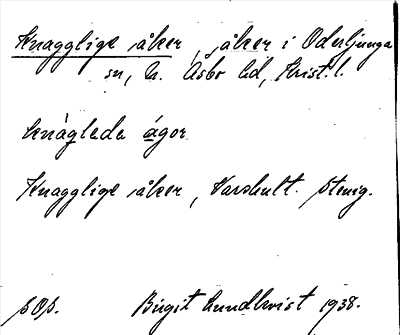 Knagglige åker, åker i Oderljunga
sn, N. Åsbo hd, Krist. l.
knàglede ágor
Knagglige åker, Varshult. Stenig.
s. 8.
Birgit Lundkvist 1938.